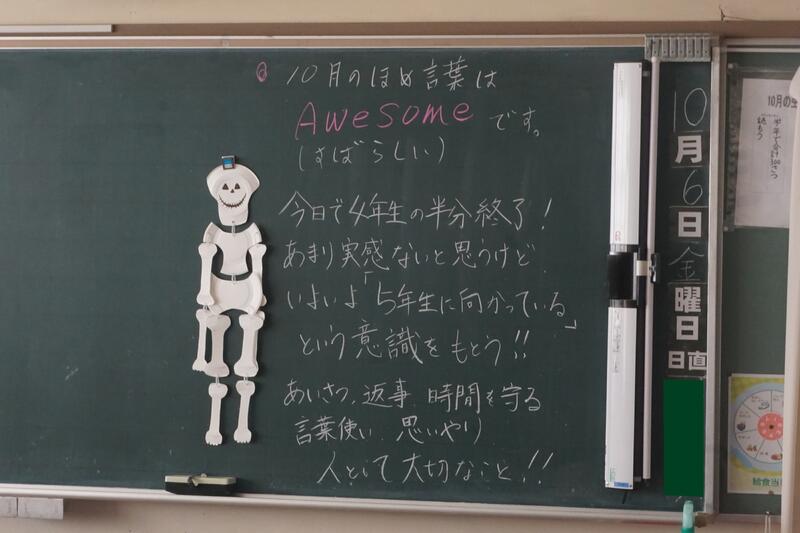 10月のほめ言葉は
Awesome です。
(すばらしい)
今日で4年生の半分終了!
あまり実感ないと思うけど
いよいよ「5年生に向かっている」
という意識をもとう!!
あいさつ、返事、時間を守る
言葉使い、思いやり
人として大切なこと!!
10月6日金曜日
日直
10月の生
給食当